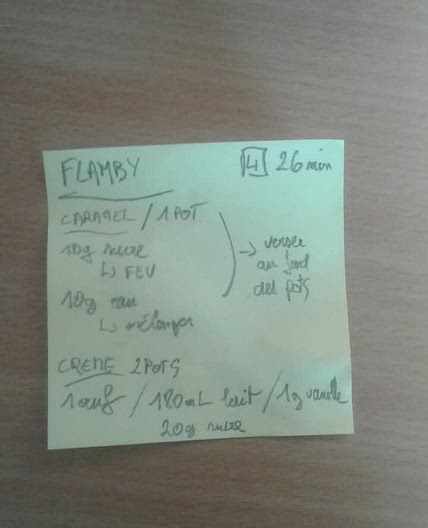 FLAMBY 4 26 min
CARAMEL / 1 POT
10g sucre
↳ FEU
10g eau
↳ mélanger
→ verser
au fond
des pots
CREME 2 POTS
1 œuf / 180mL lait / 1g vanille
20g sucre